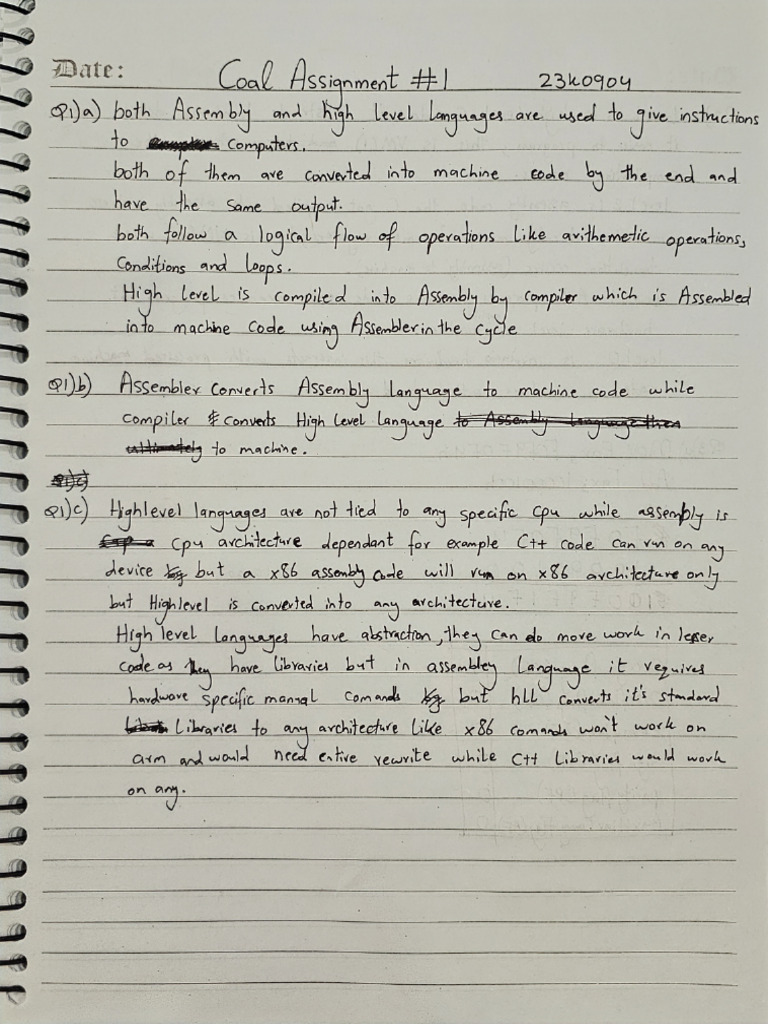 Date: Coal Assignment #1 23K0904
Q1)a) both Assembly and high level languages are used to give instructions
to computers.
both of them are converted into machine code by the end and
have the same output.
both follow a logical flow of operations like arithemetic operations,
conditions and loops.
High level is compiled into Assembly by compiler which is Assembled
into machine code using Assembler in the cycle
Q1)b) Assembler converts Assembly language to machine code while
compiler converts High level language to Assembly language then
ultimately to machine.
Q1)c)
Q1)c) Highlevel languages are not tied to any specific cpu while assembly is
cpu architecture dependant for example C++ code can run on any
device but a x86 assembly code will run on x86 architecture only
but Highlevel is converted into any architecture.
High level languages have abstraction, they can do more work in lesser
code as they have libraries but in assembley language it requires
hardware specific manual comands but hll converts it's standard
libraries to any architecture like x86 comands won't work on
arm and would need entire rewrite while C++ libraries would work
on any.